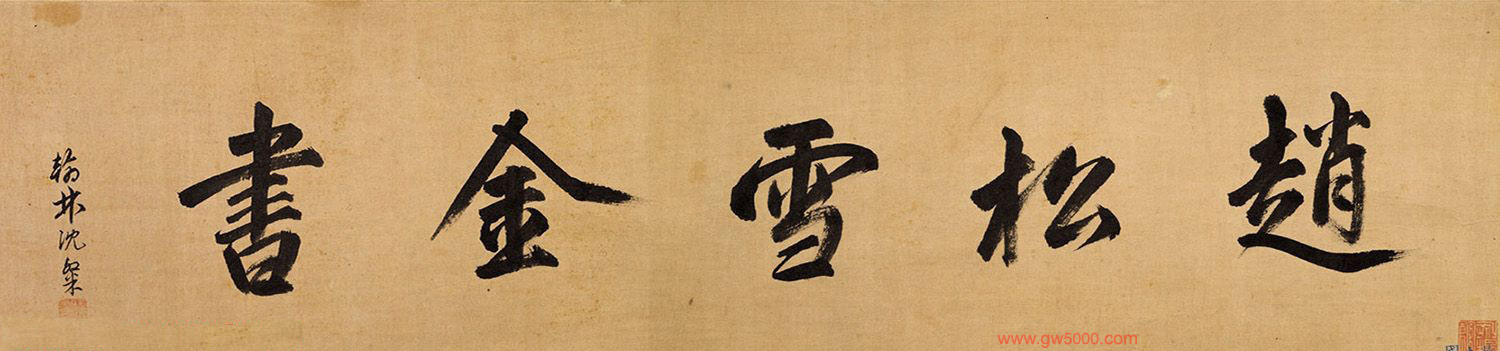 趙松雪金書
翰林沈粲
www.gw5000.com